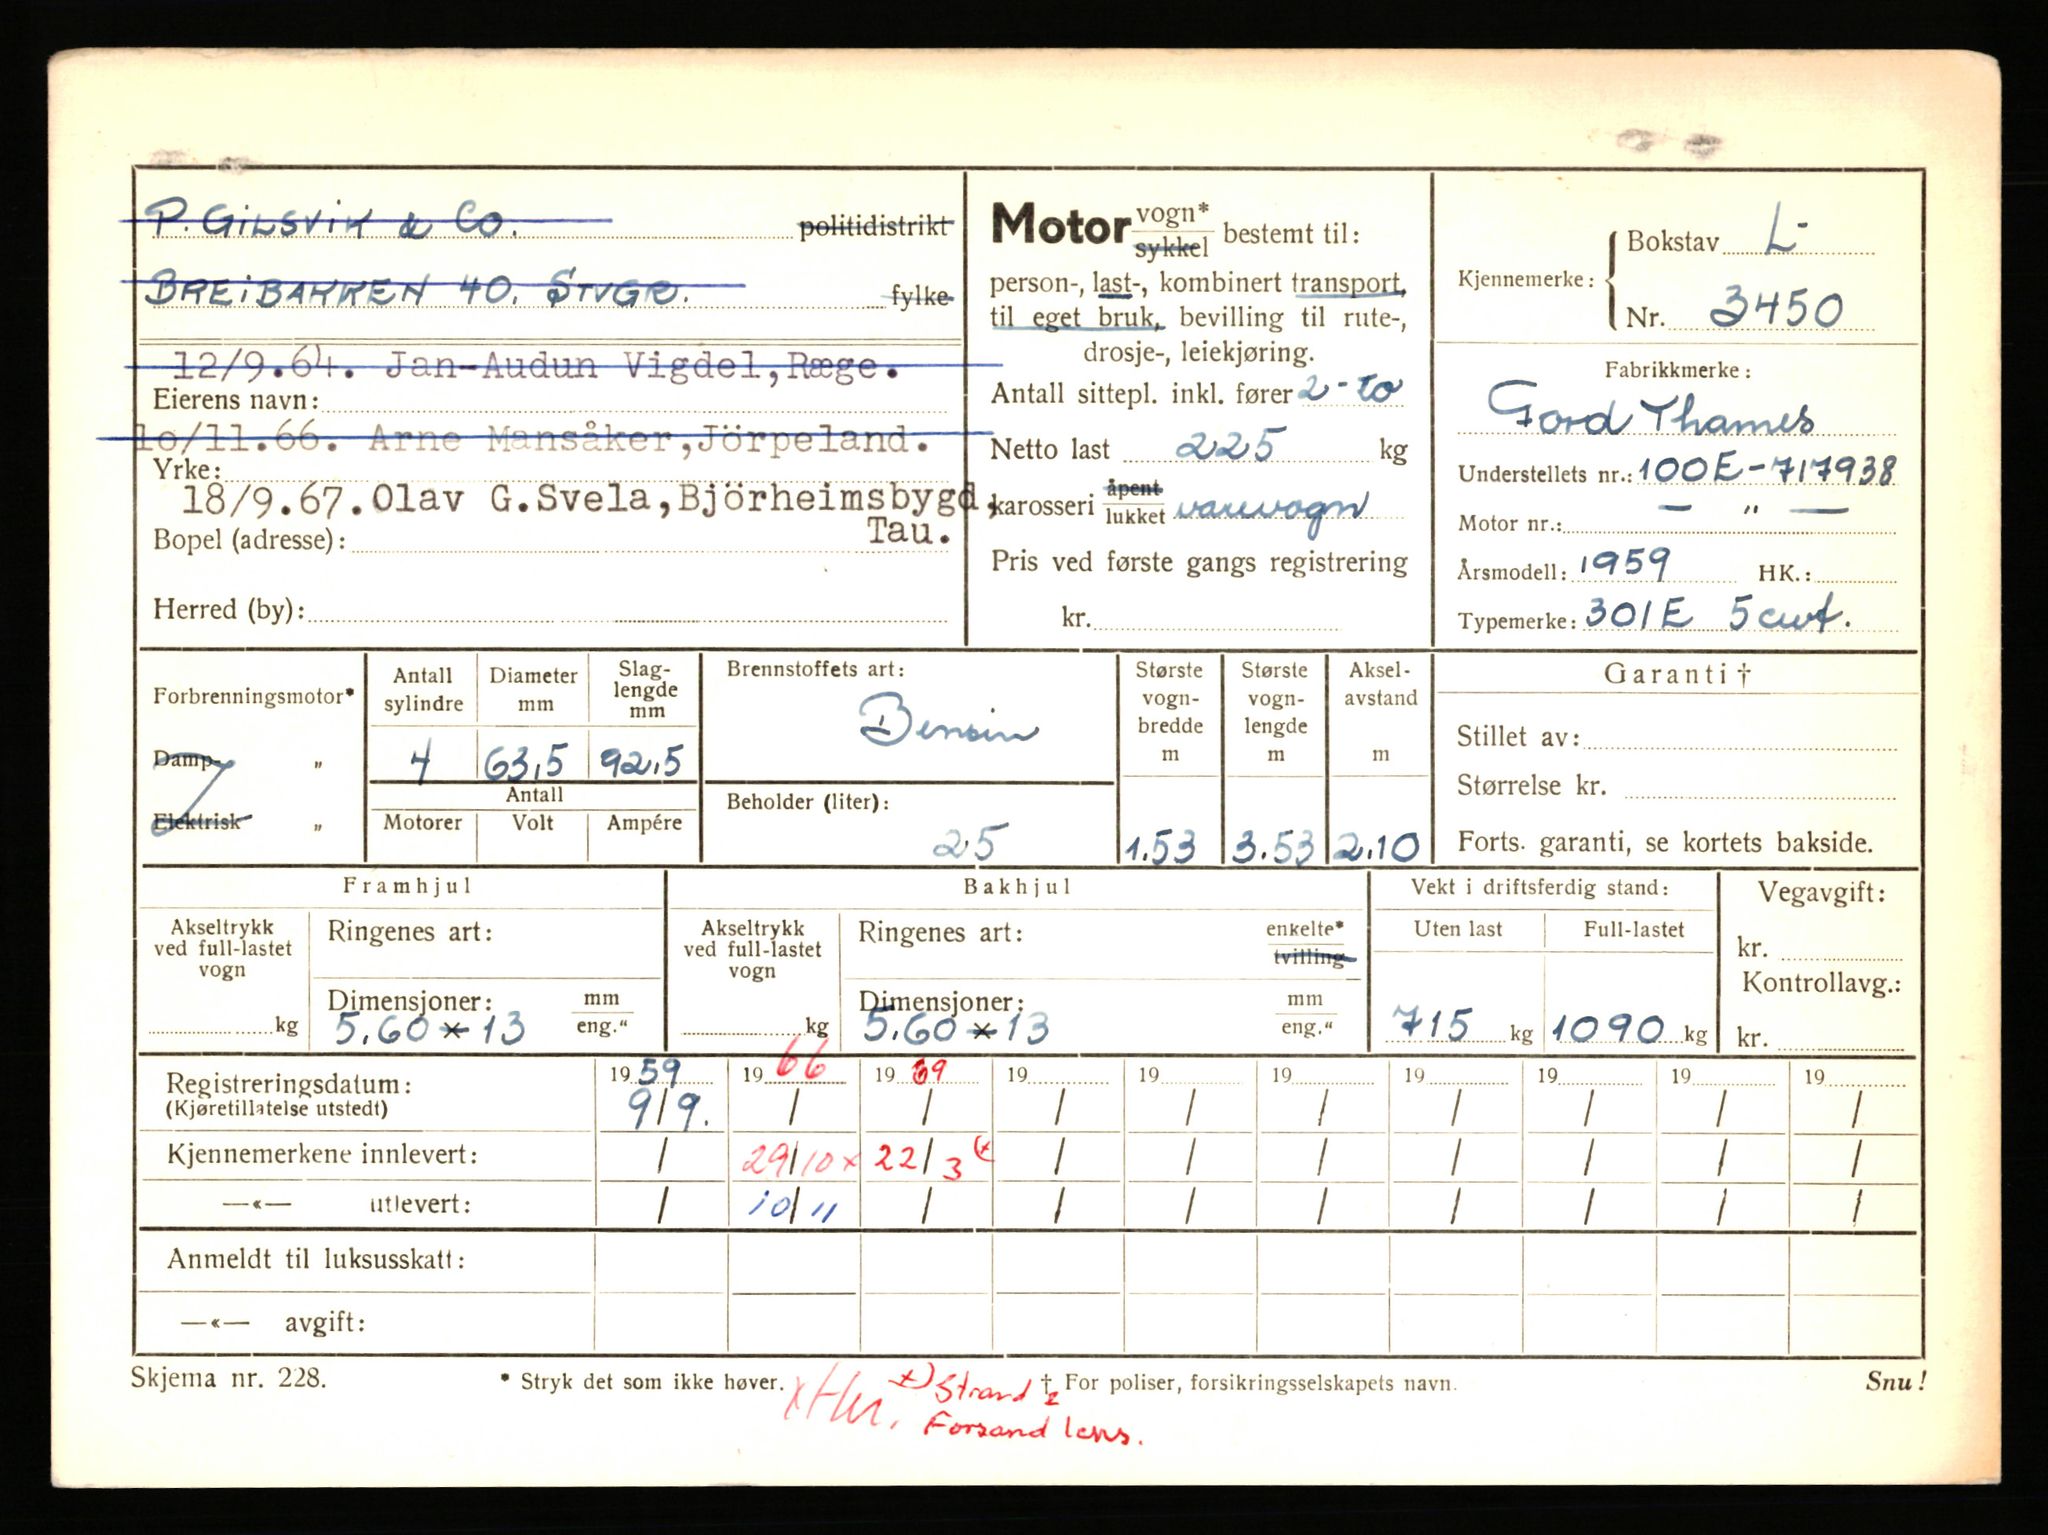 P. GILSVIK & CO. politidistrikt
BREIBAKKEN 40. STVGR. fylke
12/9.64. Jan-Audun Vigdel, Ræge.
Eierens navn:
10/11.66. Arne Mansåker, Jörpeland.
Yrke:
18/9.67. Olav G. Svela, Björheimsbygd,
Tau.
Bopel (adresse):
Herred (by):
Motor vogn* sykkel bestemt til:
person-, last-, kombinert transport,
til eget bruk, bevilling til rute-,
drosje-, leiekjøring.
Antall sittepl. inkl. fører 2 - to
Netto last 225 kg
karosseri åpent lukket varevogn
Pris ved første gangs registrering
kr.
Kjennemerke: Bokstav L-
Nr. 3450
Fabrikkmerke:
Ford Thames
Understellets nr.: 100E-717938
Motor nr.: — " —
Årsmodell: 1959 HK.:
Typemerke: 301E 5 cwt.
Forbrenningsmotor*
Damp- "
Elektrisk "
Antall sylindre
Diameter mm
Slag-lengde mm
4 63,5 92,5
Antall
Motorer Volt Ampére
Brennstoffets art:
Bensin
Beholder (liter):
25
Største vogn-bredde m
1.53
Største vogn-lengde m
3.53
Aksel-avstand m
2.10
Garanti †
Stillet av:
Størrelse kr.
Forts. garanti, se kortets bakside.
Framhjul
Akseltrykk ved full-lastet vogn
kg
Ringenes art:
Dimensjoner: mm
5.60 x 13 eng."
Bakhjul
Akseltrykk ved full-lastet vogn
kg
Ringenes art: enkelte* tvilling
Dimensjoner: mm
5.60 x 13 eng."
Vekt i driftsferdig stand:
Uten last Full-lastet
715 kg 1090 kg
Vegavgift:
kr.
Kontrollavg.:
kr.
Registreringsdatum: 19 59 19 66 19 69 19 19 19 19 19 19 19
(Kjøretillatelse utstedt) 9/9. / / / / / / / / /
Kjennemerkene innlevert: / 29/10 x 22/3 (x / / / / / / /
—«— utlevert: / 10/11 / / / / / / / /
Anmeldt til luksusskatt:
—«— avgift:
Skjema nr. 228. * Stryk det som ikke høver. † For poliser, forsikringsselskapets navn. Snu!
x) Strand
Forsand lens.